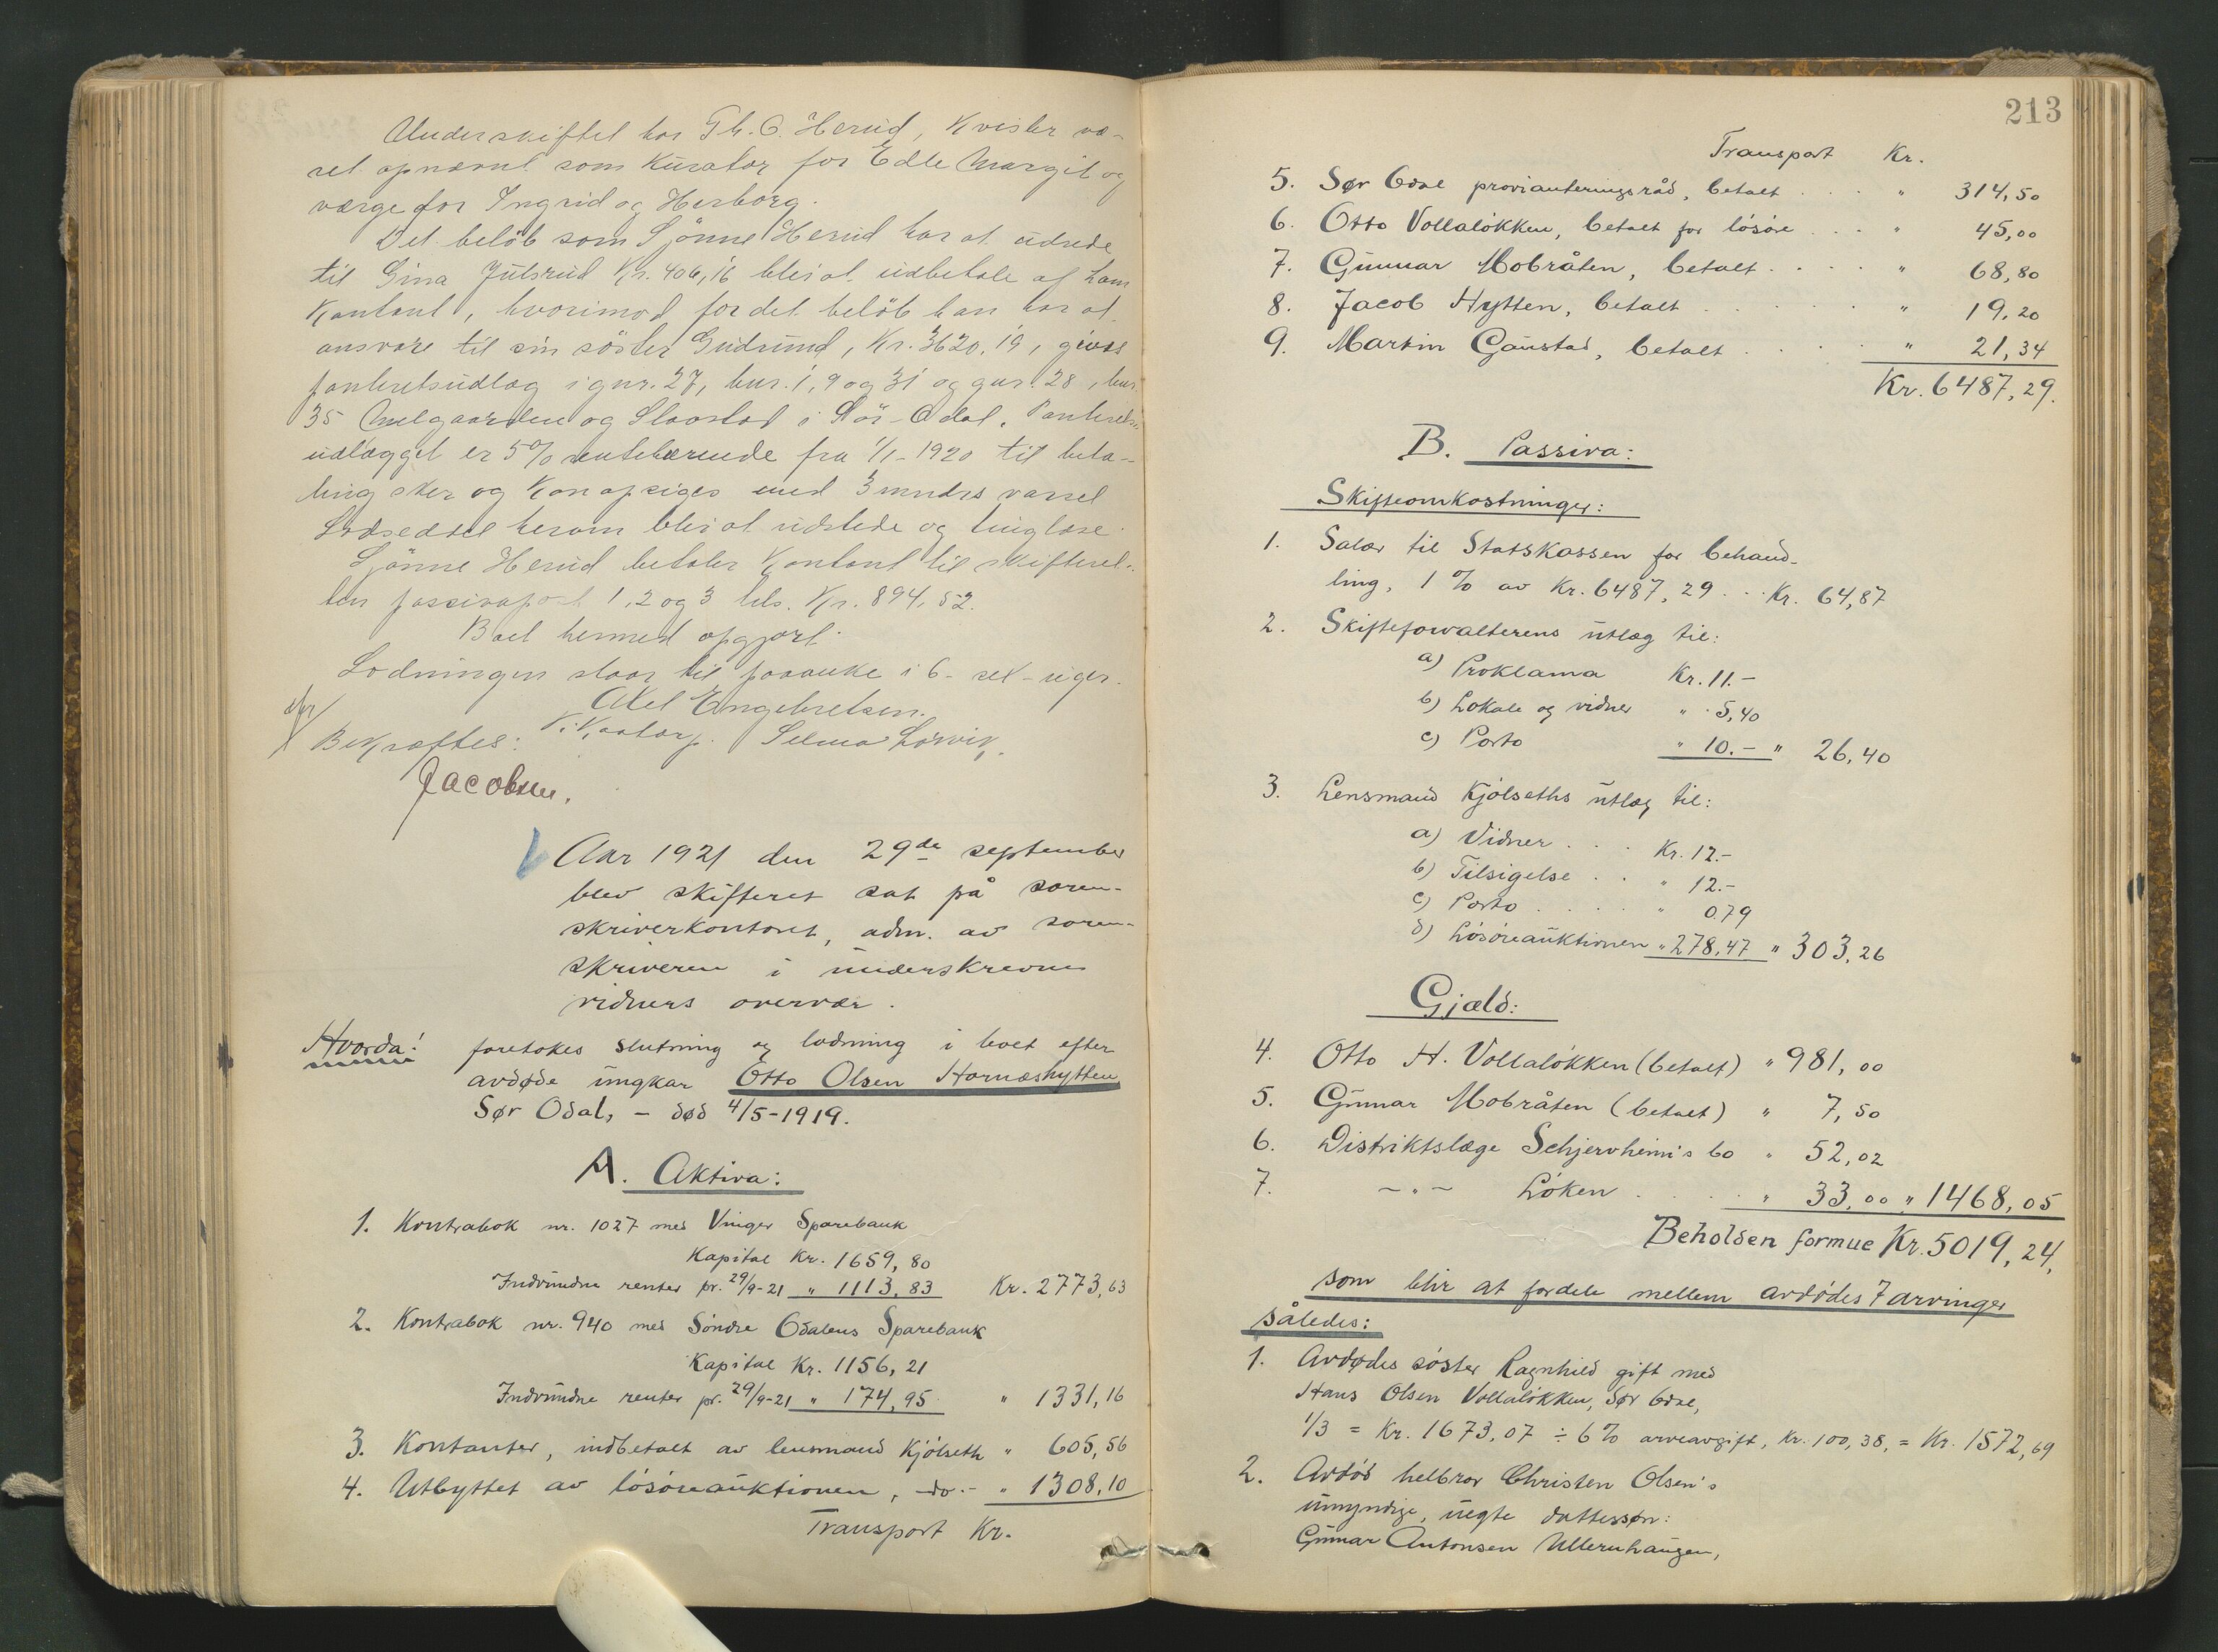 Under skiftet har Th. O. Herud, Kvisler væ-
ret opnævnt som kurator for Edle Margit og
værge for Ingrid og Herborg.
Det beløb som Sjönne Herud har at udrede
til Gina Julsrud Kr. 406,16 blei at udbetale af ham
kontant, hvorimod for det beløb han har at
ansvare til sin söster Gudrund, Kr. 3620,19, gives
panteretsudlæg i gnr. 27, bnr. 1, 9 og 31 og gnr. 28, bnr.
35 Melgaarden og Slaastad i Sör-Odal. Panterets-
udlægget er 5% rentebærende fra 1/1-1920 til beta-
ling sker og kan opsiges med 3 mndrs varsel
Lodseddel herom blei at udstede og tinglæse.
Sjönne Herud betaler kontant til skifteret-
ten passivapost 1, 2 og 3 tils. Kr. 894,52.
Boet hermed opgjort.
Lodningen staar til paaanke i 6 - sex - uger.
Axel Engebretsen.
Bekræftes: Selma Lörvik.
Jacobsen.
Aar 1921 den 29de september
blev skifteret sat på soren-
skriverkontoret, adm. av soren-
skriveren i underskrevne
vidners overvær.
Hvorda! foretokes slutning og lodning i boet efter
avdøde ungkar Otto Olsen Hornæshytten
Sør Odal, - død 4/5-1919.
A. Aktiva:
1. Kontrabok nr. 1027 med Vinger Sparebank
Kapital Kr. 1659,80
Indvundne renter pr. 29/9-21 " 1113,83 Kr. 2773,63
2. Kontrabok nr. 940 med Söndre Odalens Sparebank
Kapital Kr. 1156,21
Indvundne renter pr. 29/9-21 " 174,95 " 1331,16
3. Kontanter, indbetalt av lensmand Kjölseth " 605,56
4. Utbyttet av lösöreauktionen, -do- " 1308,10
Transport Kr.
213
Transport Kr.
5. Sør Odal provianteringsråd, betalt . . . " 314,50
6. Otto Vollalökken, betalt for lösöre . . . " 45,00
7. Gunnar Mobråten, betalt . . . . " 68,80
8. Jacob Hytten, betalt . . . . " 19,20
9. Martin Gaustad, betalt . . . . " 21,34
Kr. 6487,29.
B. Passiva:
Skifteomkostninger:
1. Salær til Statskassen for behand-
ling, 1% av Kr. 6487,29 . . . Kr. 64,87
2. Skifteforvalterens utlæg til:
a) Proklama Kr. 11.-
b) Lokale og vidner " 5,40
c) Porto " 10.- " 26,40
3. Lensmand Kjölseths utlæg til:
a) Vidner . . . Kr. 12.-
b) Tilsigelse . . " 12.-
c) Porto . . . . " 0.79
d) Lösöreauktionen " 278,47 " 303,26
Gjæld:
4. Otto H. Vollalökken (betalt) " 981,00
5. Gunnar Mobråten (betalt) " 7,50
6. Distriktslæge Schjervheim's bo " 52,02
7. -"- Löken . . . . " 33,00 " 1468,05
Beholden formue Kr. 5019,24,
som blir at fordele mellem avdödes 7 arvinger
således:
1. Avdødes söster Ragnhild gift med
Hans Olsen Vollalökken, Sør Odal,
1/3 = Kr. 1673,07 ÷ 6% arveavgift, Kr. 100,38, = Kr. 1572,69
2. Avdöd helbror Christen Olsen's
umyndige, uegte dattersøn:
Gunnar Antonsen Ullernhaugen,